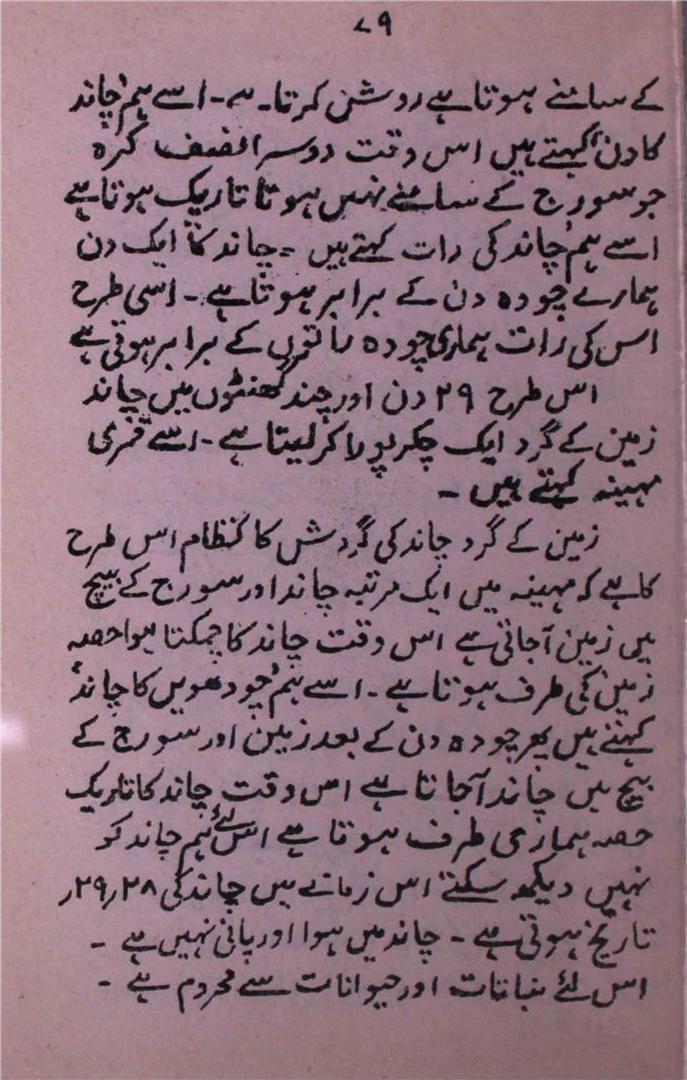 ۷۹
کے سامنے ہوتا ہے روشن کرتا۔ ہے۔ اسے ہم 'چاند
کا دن' کہتے ہیں اس وقت دوسرا نصف کرہ
جو سورج کے سامنے نہیں ہوتا تاریک ہوتا ہے
اسے ہم 'چاند کی رات کہتے ہیں ۔ چاند کا ایک دن
ہمارے چودہ دن کے برابر ہوتا ہے ۔ اسی طرح
اس کی رات ہماری چودہ راتوں کے برابر ہوتی ہے
اس طرح ۲۹ دن اور چند گھنٹوں میں چاند
زمین کے گرد ایک چکر پورا کر لیتا ہے ۔ اسے قمری
مہینہ کہتے ہیں ۔
زمین کے گرد چاند کی گردش کا نظام اس طرح
کا ہے کہ مہینہ میں ایک مرتبہ چاند اور سورج کے بیچ
میں زمین آجاتی ہے اس وقت چاند کا چمکتا ہوا حصہ
زمین کی طرف ہوتا ہے ۔ اسے ہم 'چودھویں کا چاند'
کہتے ہیں پھر چودہ دن کے بعد زمین اور سورج کے
بیچ میں چاند آجاتا ہے اس وقت چاند کا تاریک
حصہ ہماری طرف ہوتا ہے اس لئے ہم چاند کو
نہیں دیکھ سکتے اس زمانے میں چاند کی ۲۸ر۲۹ر
تاریخ ہوتی ہے ۔ چاند میں ہوا اور پانی نہیں ہے ۔
اس لئے نباتات اور حیوانات سے محروم ہے ۔